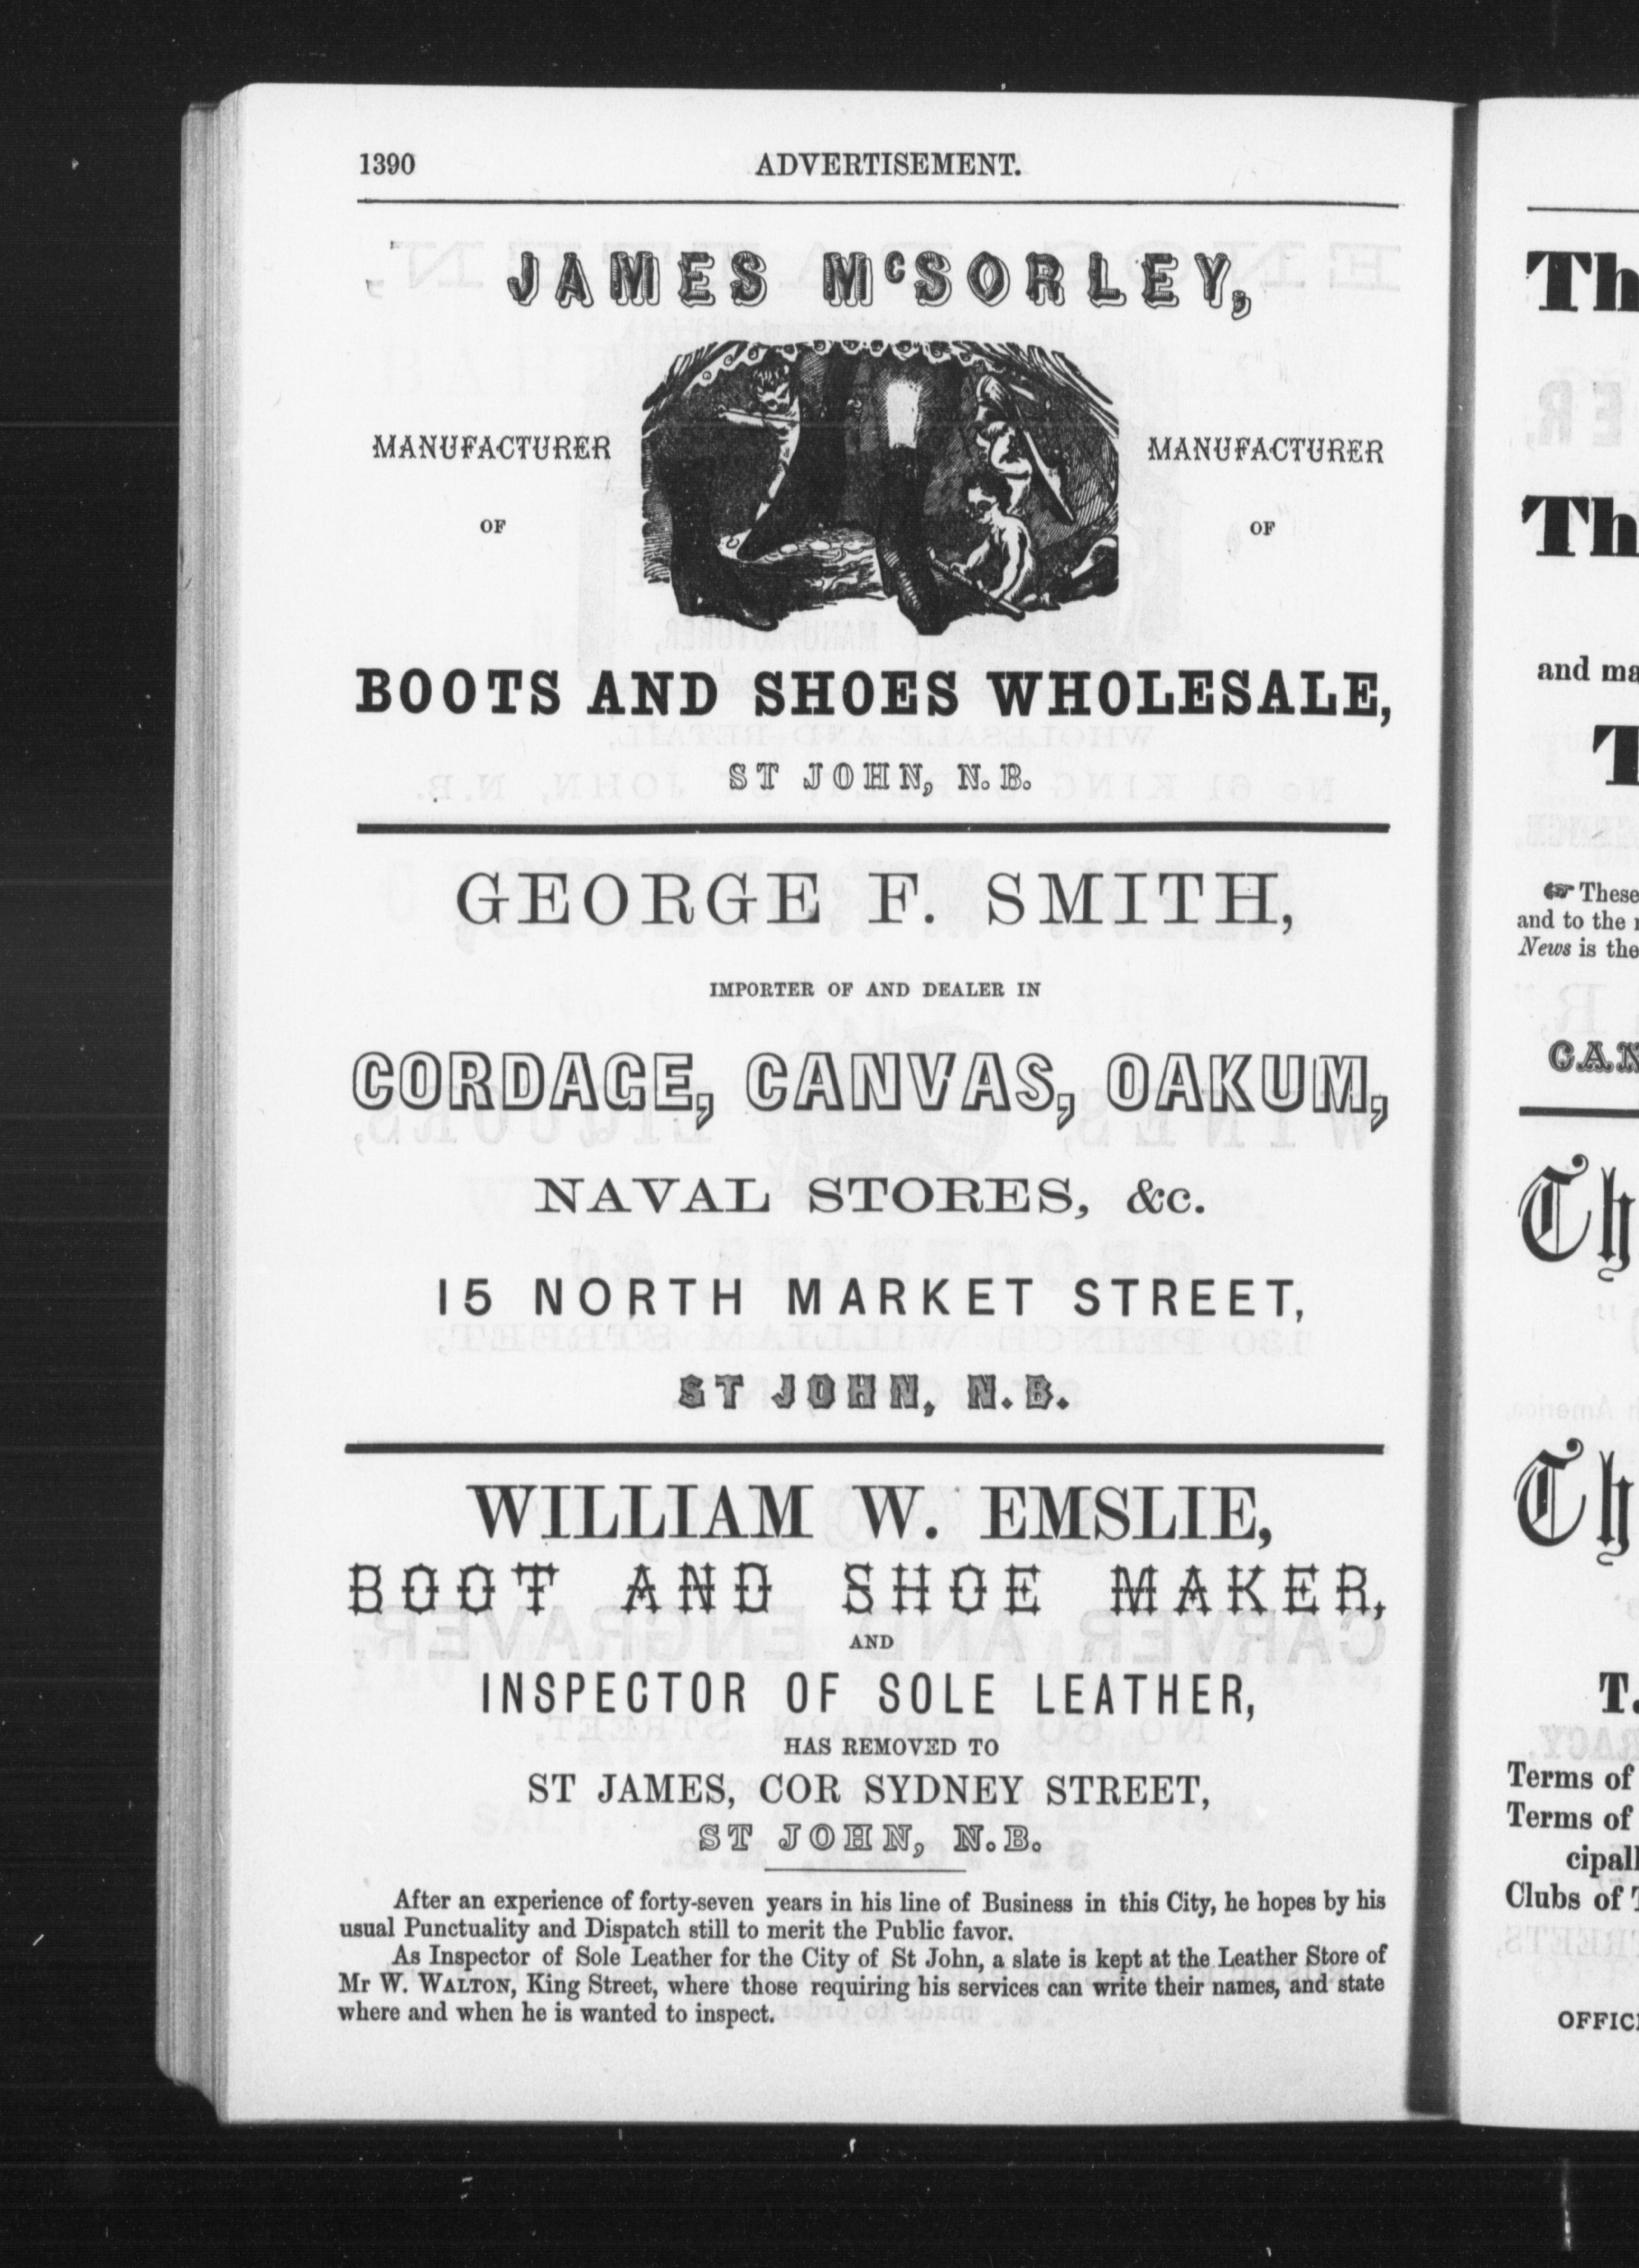 1390 ADVERTISEMENT.
JAMES McSORLEY,
MANUFACTURER MANUFACTURER
OF OF
BOOTS AND SHOES WHOLESALE,
ST JOHN, N.B.
GEORGE F. SMITH,
IMPORTER OF AND DEALER IN
CORDAGE, CANVAS, OAKUM,
NAVAL STORES, &c.
15 NORTH MARKET STREET,
ST JOHN, N.B.
WILLIAM W. EMSLIE,
BOOT AND SHOE MAKER,
AND
INSPECTOR OF SOLE LEATHER,
HAS REMOVED TO
ST JAMES, COR SYDNEY STREET,
ST JOHN, N.B.
After an experience of forty-seven years in his line of Business in this City, he hopes by his
usual Punctuality and Dispatch still to merit the Public favor.
As Inspector of Sole Leather for the City of St John, a slate is kept at the Leather Store of
Mr W. WALTON, King Street, where those requiring his services can write their names, and state
where and when he is wanted to inspect.
Th
Th
and ma
T
☞ These
and to the
News is the
CAN
Th
Th
T.
Terms of
Terms of
cipall
Clubs of
OFFIC